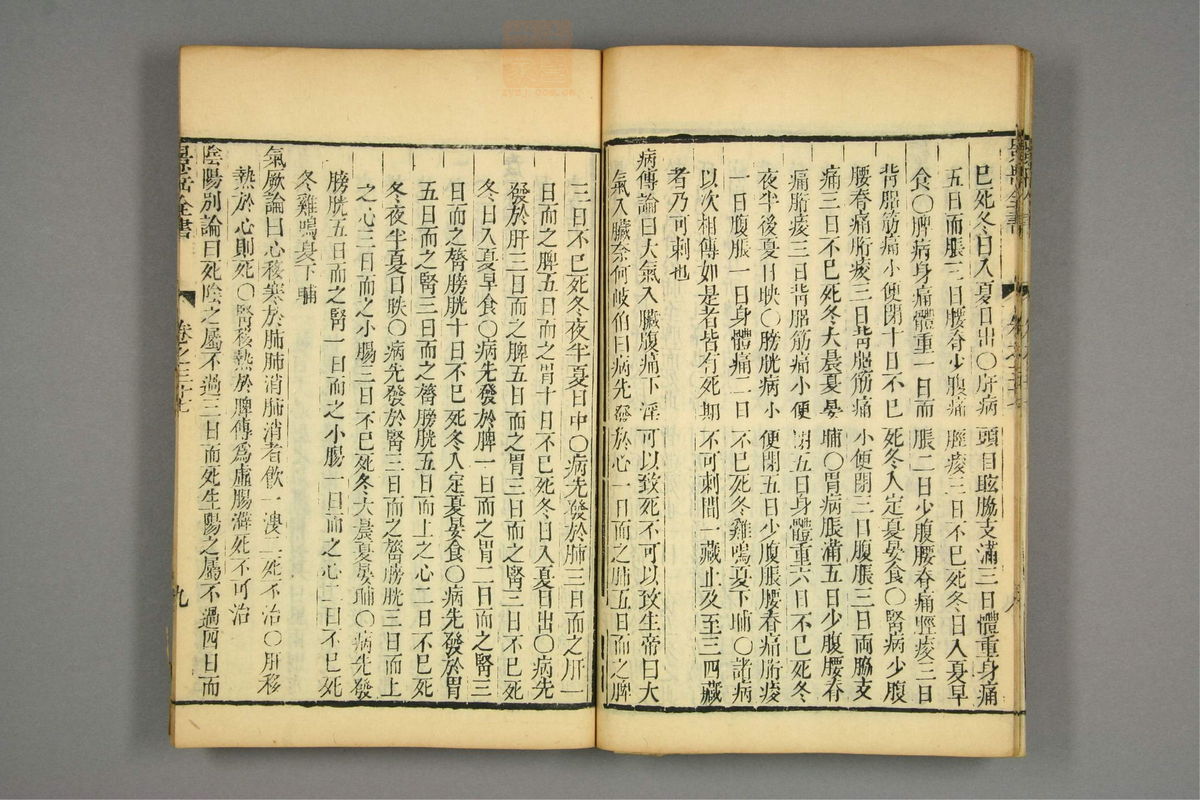 已死冬日入夏日出〇肝病頭目眩脇支滿三日體重身痛
五日而脹三日腰脊少腹痛脛痠三日不已死冬日入夏早
食〇脾病身痛體重一日而脹二日少腹腰脊痛脛痠三日
背䐃筋痛小便閉十日不已死冬人定夏晏食〇腎病少腹
腰脊痛胻痠三日背䐃筋痛小便閉三日腹脹三日両脇支
痛三日不已死冬大晨夏晏晡〇胃病脹滿五日少腹腰脊
痛胻痠三日背䐃筋痛小便閉五日身體重六日不已死冬
夜半後夏日昳〇膀胱病小便閉五日少腹脹腰脊痛胻痠
一日腹脹一日身體痛二日不已死冬雞鳴夏下晡〇諸病
以次相傳如是者皆有死期不可刺間一藏止及至三四藏
者乃可刺也
病傳論曰大氣入臟腹痛下淫可以致死不可以致生帝曰大
氣入臟奈何岐伯曰病先發於心一日而之肺五日而之脾
三日不已死冬夜半夏日中〇病先發於肺三日而之肝一
日而之脾五日而之胃十日不已死冬日入夏日出〇病先
發於肝三日而之脾五日而之胃三日而之腎三日不已死
冬日入夏早食〇病先發於脾一日而之胃二日而之腎三
日而之膂膀胱十日不已死冬人定夏晏食〇病先發於胃
五日而之腎三日而之膂膀胱五日而上之心二日不已死
冬夜半夏日昳〇病先發於腎三日而之膂膀胱三日而上
之心三日而之小腸三日不已死冬大晨夏晏晡〇病先發
膀胱五日而之腎一日而之小腸一日而之心二日不已死
冬雞鳴夏下晡
氣厥論曰心移寒於肺肺消肺消者飲一溲二死不治〇肝移
熱於心則死〇腎移熱於脾傳爲虛腸澼死不可治
陰陽別論曰死陰之屬不過三日而死生陽之屬不過四日而
景岳全書
卷之三十七
九